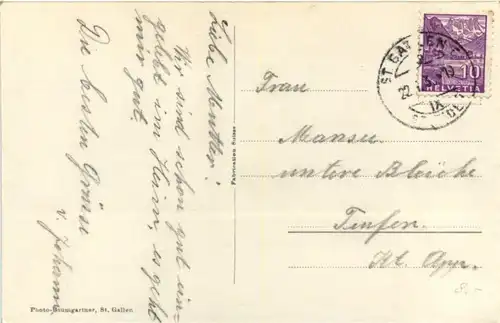 Liebe Mutter!
Wir sind schon gut
gelebt im Hain, es geht
mir gut.
Die besten Grüsse
v. Johann
Photo-Baumgartner, St. Gallen
Fabrication Suisse
ST. GALLEN
IX
10
HELVETIA
Frau
Manser
untere Bleiche
Teufen
Kt. App.
8.-